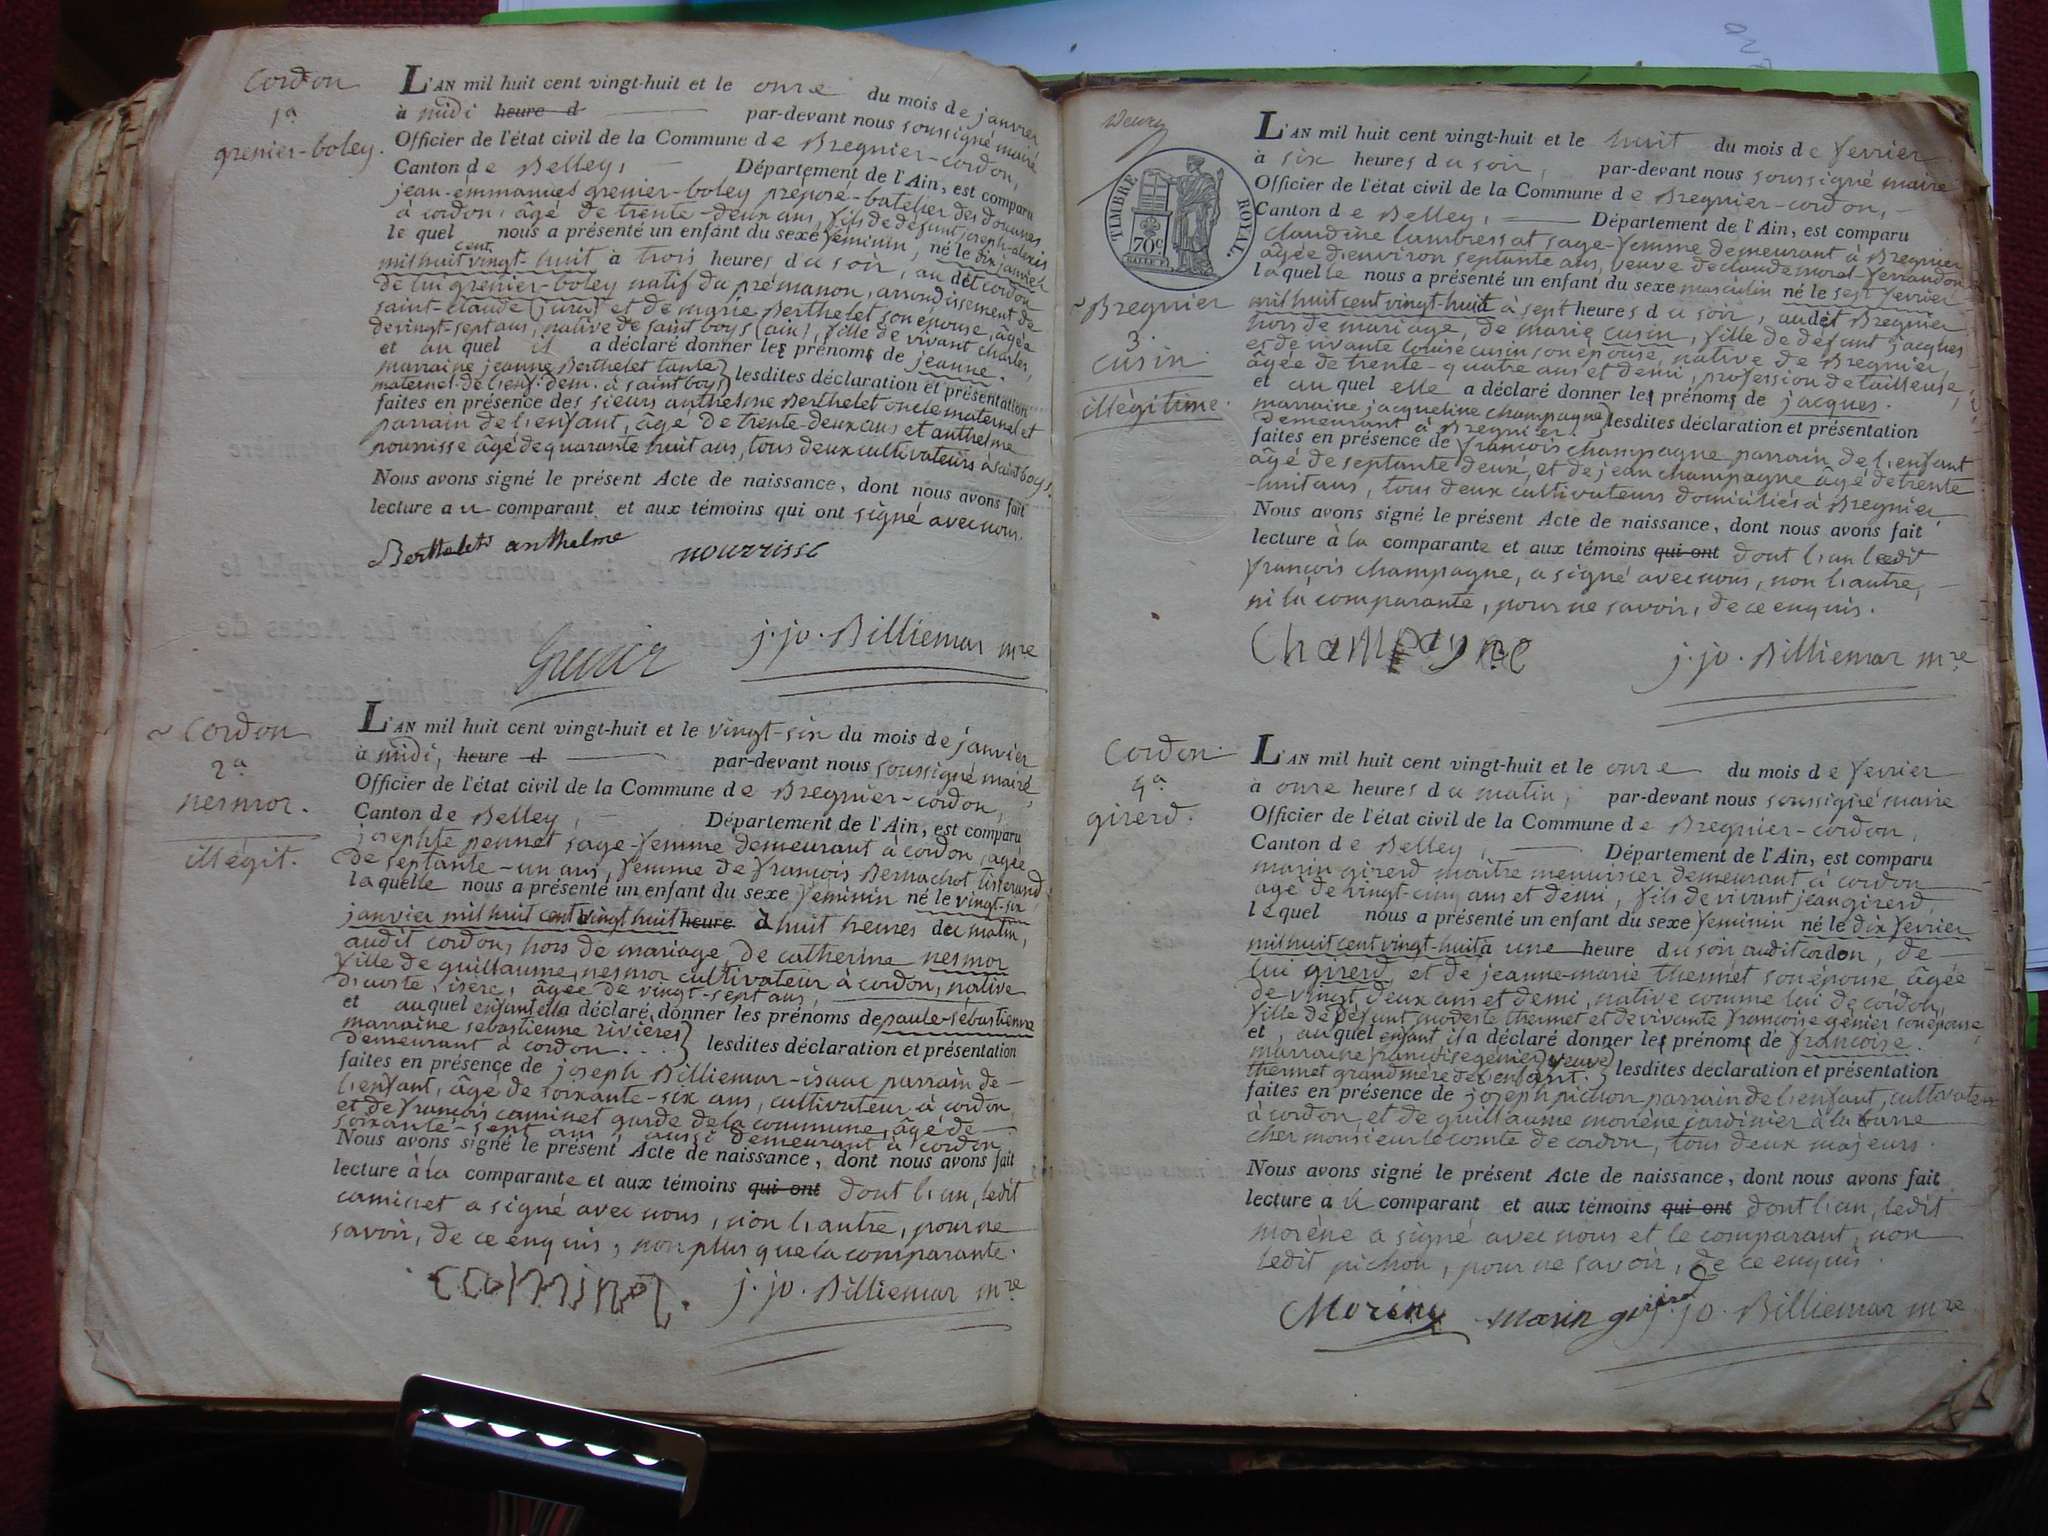 Cordon
1ª
grenier-boley.
L'AN mil huit cent vingt-huit et le onze du mois de janvier
à midi heure d par-devant nous soussigné maire
Officier de l'état civil de la Commune de Bregnier-cordon,
Canton de Belley, Département de l'Ain, est comparu
jean-emmanuel grenier-boley préposé-batelier des douanes
à cordon, âgé de trente-deux ans, fils de défunt joseph-alexis
le quel nous a présenté un enfant du sexe féminin, né le dix janvier
mil huit cent vingt-huit à trois heures du soir, au dit cordon
de lui grenier-boley natif du prémanon, arrondissement de
saint-claude (jura) et de marie Berthelet son épouse, âgée
de vingt-sept ans, native de saint boys (ain), fille de vivant charles,
et au quel il a déclaré donner les prénoms de jeanne.
marraine jeanne Berthelet tante
maternel. de l'enf. dem. à saint boys } lesdites déclaration et présentation
faites en présence des sieurs anthelme Berthelet oncle maternel et
parrain de l'enfant, âgé de trente-deux ans et anthelme
nourrisse âgé de quarante huit ans, tous deux cultivateurs à saint boys.
Nous avons signé le présent Acte de naissance, dont nous avons fait
lecture au comparant et aux témoins qui ont signé avec nous.
Berthelet anthelme nourrisse
Grenier j. jo. Billiemar mre
~ Cordon
2ª
nesmoz.
illégit.
L'AN mil huit cent vingt-huit et le vingt-six du mois de janvier
à midi, heure d par-devant nous soussigné maire,
Officier de l'état civil de la Commune de Bregnier-cordon,
Canton de Belley, Département de l'Ain, est comparu
josephte pennet sage-femme demeurant à cordon, âgée
de septante-un ans, femme de françois Bernachot tisserand
la quelle nous a présenté un enfant du sexe féminin né le vingt-six
janvier mil huit cent vingt huit heure à huit heures du matin,
audit cordon, hors de mariage, de catherine nesmoz
fille de guillaume nesmoz cultivateur à cordon, native
d'aoste, isère, âgée de vingt-sept ans,
et auquel enfant ella déclaré donner les prénoms de paule-sébastienne
marraine sébastienne rivières
demeurant à cordon... } lesdites déclaration et présentation
faites en présence de joseph Billiemar-isaac parrain de
l'enfant, âgé de soixante-six ans, cultivateur à cordon,
et de françois caminet garde de la commune, âgé de
soixante-sept ans, aussi demeurant à cordon
Nous avons signé le présent Acte de naissance, dont nous avons fait
lecture à la comparante et aux témoins qui ont dont l'un, ledit
caminet a signé avec nous, non l'autre, pour ne
savoir, de ce enquis, non plus que la comparante.
caminet. j. jo. Billiemar mre
TIMBRE ROYAL.
70c
~ Bregnier
3.
cusin.
illégitime.
L'AN mil huit cent vingt-huit et le huit du mois de février
à six heures du soir, par-devant nous soussigné maire
Officier de l'état civil de la Commune de Bregnier-cordon,
Canton de Belley, Département de l'Ain, est comparu
claudine lambressat sage-femme demeurant à Bregnier,
âgée d'environ septante ans, veuve de claude moret ferrandon
laquelle nous a présenté un enfant du sexe masculin né le sept février
mil huit cent vingt-huit à sept heures du soir, audit Bregnier
hors de mariage, de marie cusin, fille de défunt jacques
et de vivante louise cusin son épouse, native de Bregnier,
âgée de trente-quatre ans et demi, profession de tailleuse,
et au quel elle a déclaré donner les prénoms de jacques.
marraine jacqueline champagne
demeurant à Bregnier. } lesdites déclaration et présentation
faites en présence de françois champagne parrain de l'enfant
âgé de septante deux, et de jean champagne âgé de trente
-huit ans, tous deux cultivateurs domiciliés à Bregnier,
Nous avons signé le présent Acte de naissance, dont nous avons fait
lecture à la comparante et aux témoins qui ont dont l'un ledit
françois champagne, a signé avec nous, non l'autre,
ni la comparante, pour ne savoir, de ce enquis.
Champagne j. jo. Billiemar mre
Cordon.
4ª
girerd.
L'AN mil huit cent vingt-huit et le onze du mois de février
à onze heures du matin, par-devant nous soussigné maire
Officier de l'état civil de la Commune de Bregnier-cordon,
Canton de Belley, Département de l'Ain, est comparu
marin girerd maître menuisier demeurant à cordon
âgé de vingt-cinq ans et demi, fils de vivant jean girerd,
lequel nous a présenté un enfant du sexe féminin né le dix février
mil huit cent vingt-huit à une heure du soir audit cordon, de
lui girerd et de jeanne-marie thermet son épouse, âgée
de vingt deux ans et demi, native comme lui de cordon,
fille de défunt modeste thermet et de vivante françoise génier son épouse
et auquel enfant il a déclaré donner les prénoms de françoise.
marraine françoise génier veuve
thermet grand'mère de l'enfant. } lesdites déclaration et présentation
faites en présence de joseph pichon parrain de l'enfant, cultivateur
à cordon, et de guillaume morène jardinier à la barre
chez monsieur le comte de cordon, tous deux majeurs.
Nous avons signé le présent Acte de naissance, dont nous avons fait
lecture au comparant et aux témoins qui ont dont l'un, ledit
morène a signé avec nous et le comparant, non
ledit pichon, pour ne savoir, de ce enquis.
Morene marin girerd j. jo. Billiemar mre